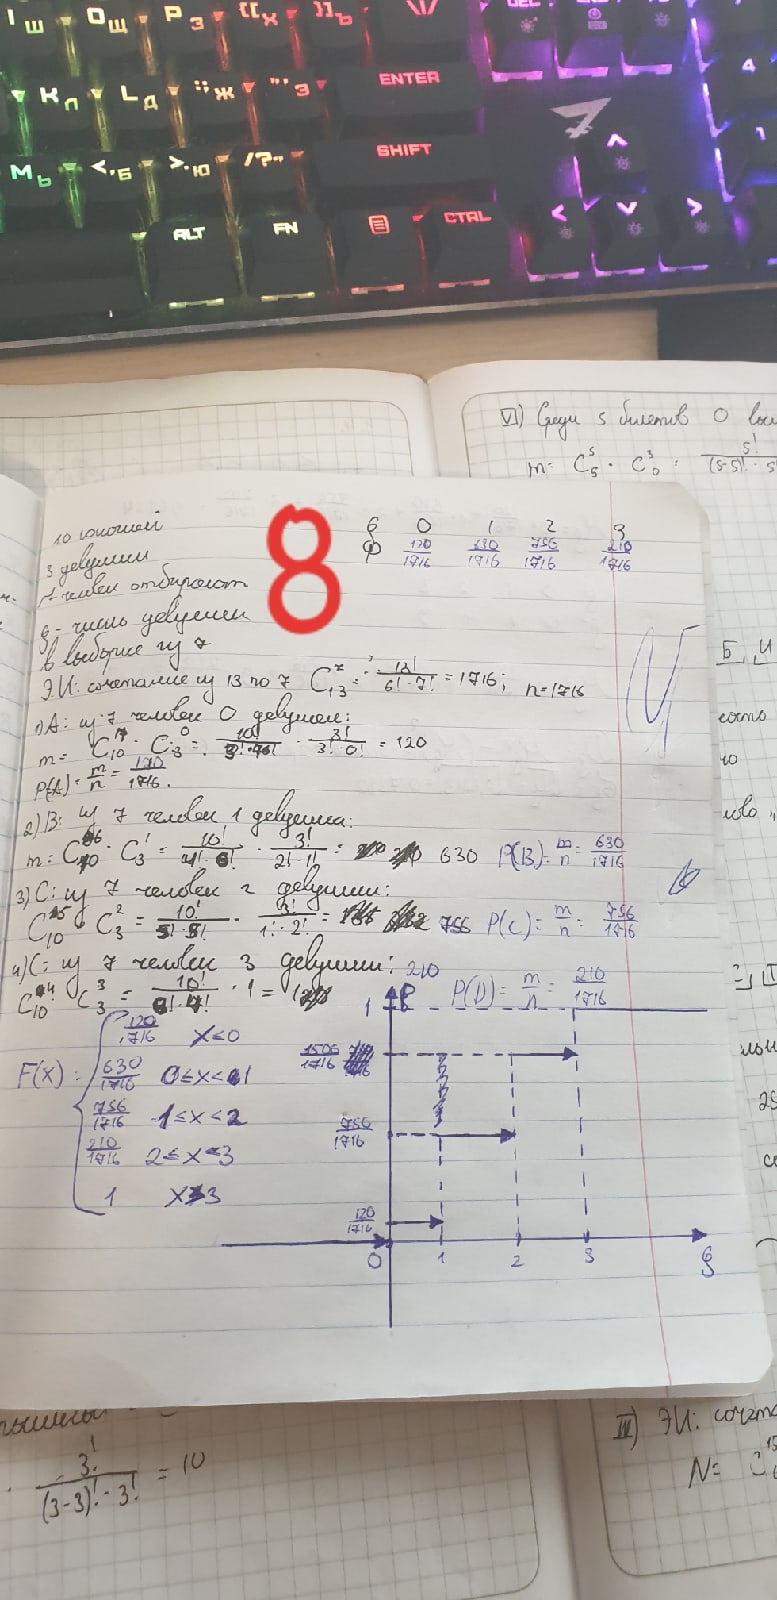 Ш О Щ Р З {[ Х }] Ъ \|/
К Л L Д : ; Ж " ' Э ENTER 4
М Ь < , Б > . Ю / ? SHIFT
ALT FN CTRL
VI) Среди 5 билетов 0
m = C₅⁵ · C₀³ = 5!/(5-5)! · 5!
10 юношей
3 девушки
7 человек отбирают
ξ - число девушек
в выборке из 7
8
ξ 0 1 2 3
P 120/1716 630/1716 756/1716 210/1716
Э.И: сочетание из 13 по 7 C₁₃⁷ = 13!/6!·7! = 1716; n=1716
1) A: из 7 человек 0 девушек:
m = C₁₀⁷ · C₃⁰ = 10!/3!·7! · 3!/3!·0! = 120
P(A) = m/n = 120/1716.
2) B: из 7 человек 1 девушка:
m = C₁₀⁶ · C₃¹ = 10!/4!·6! · 3!/2!·1! = 630 P(B) = m/n = 630/1716
3) C: из 7 человек 2 девушки:
C₁₀⁵ · C₃² = 10!/5!·5! · 3!/1!·2! = 756 P(C) = m/n = 756/1716
4) C: из 7 человек 3 девушки: 210
C₁₀⁴ · C₃³ = 10!/6!·4! · 1 = P(D) = m/n = 210/1716
F(x) =
120/1716 x≤0
630/1716 0≤x<1
756/1716 1≤x<2
210/1716 2≤x<3
1 x>3
1 P
1506/1716
756/1716
120/1716
0 1 2 3 ξ
3!/(3-3)!·3! = 10
III) Э.И: 
N= C